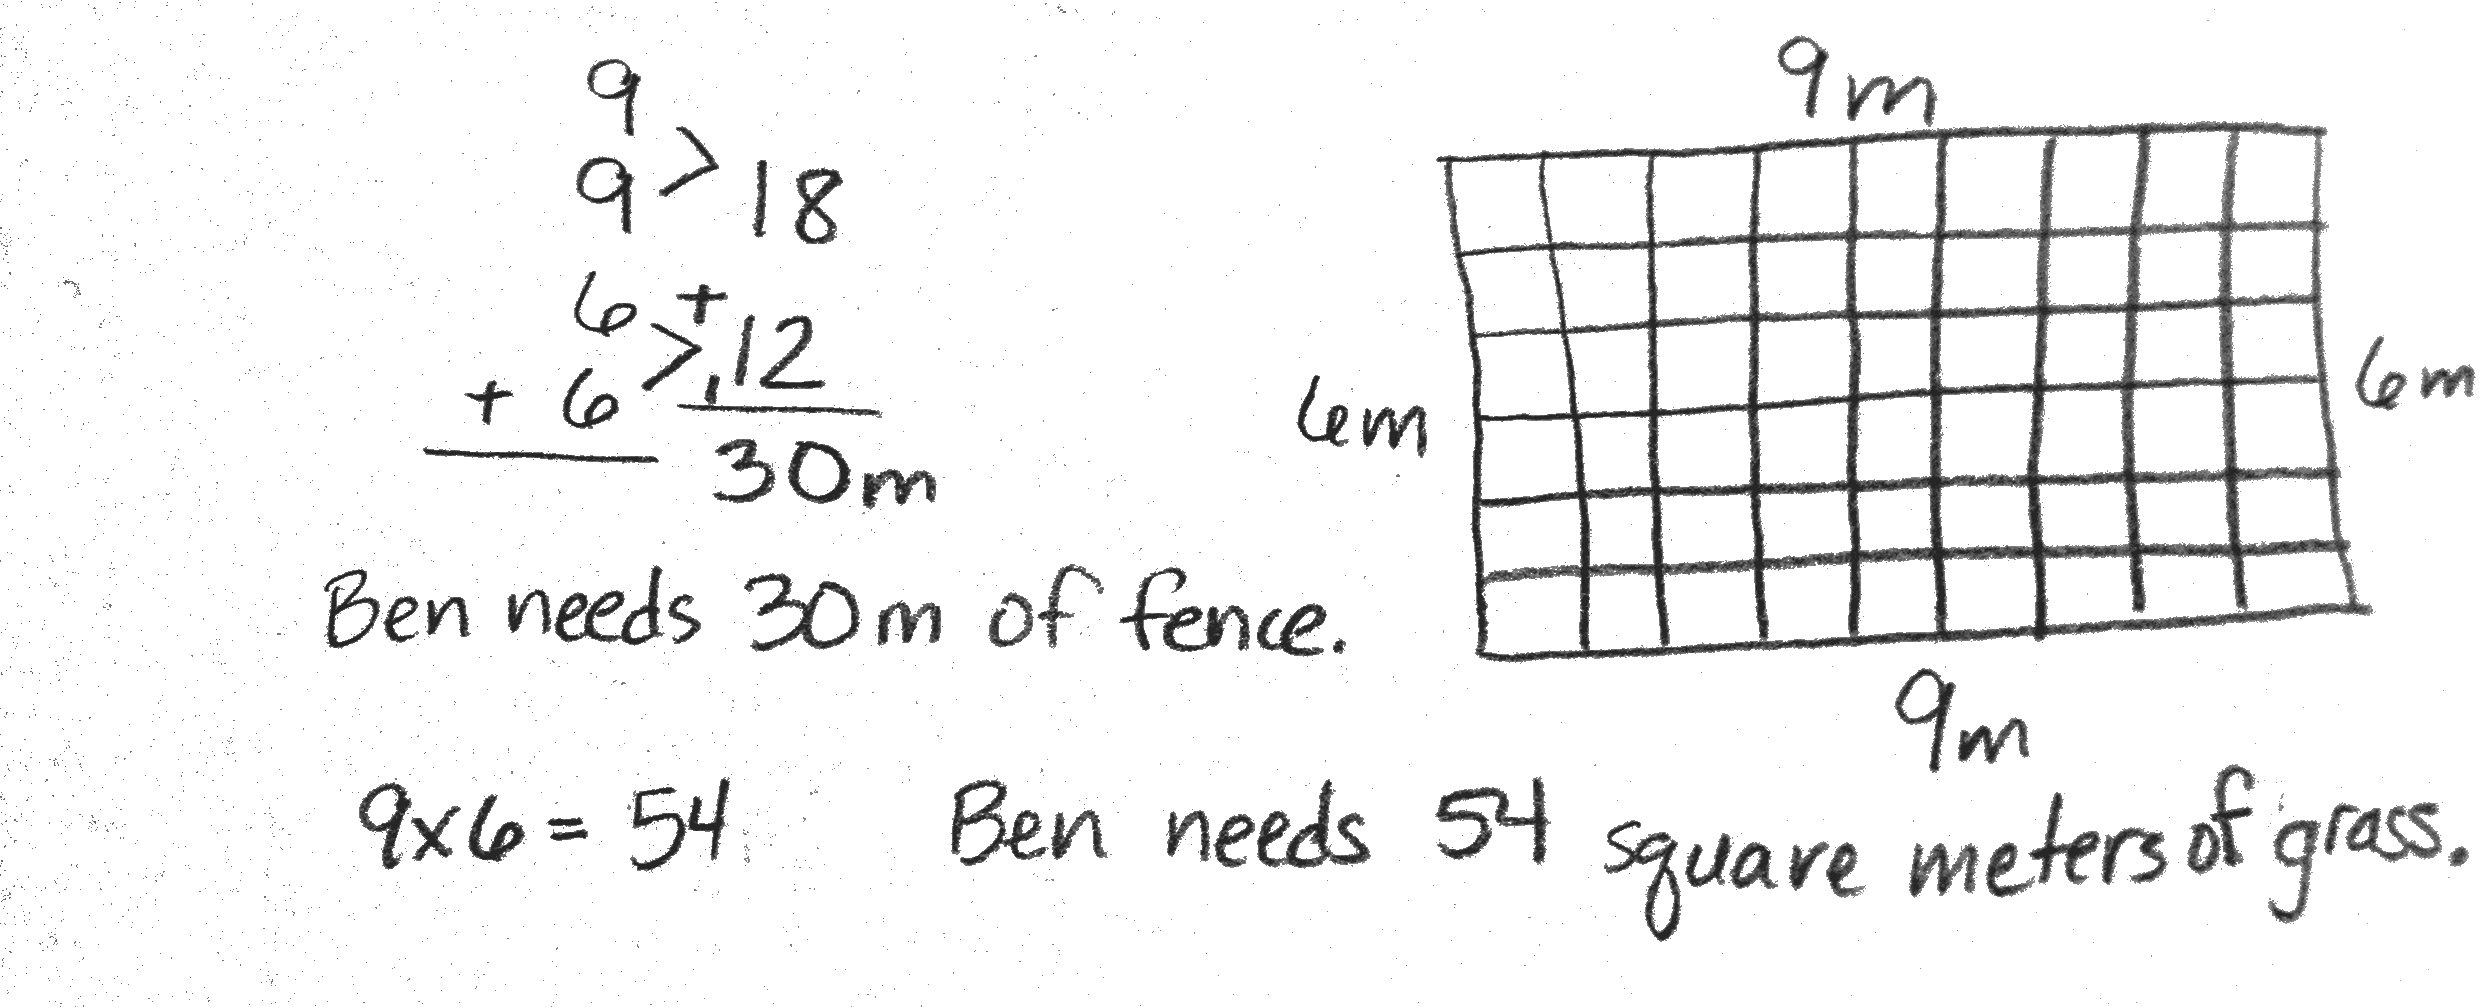 9
9 > 18
6 +
+ 6 > 12
30m
Ben needs 30m of fence.
9m
6m
6m
9m
9x6 = 54
Ben needs 54 square meters of grass.